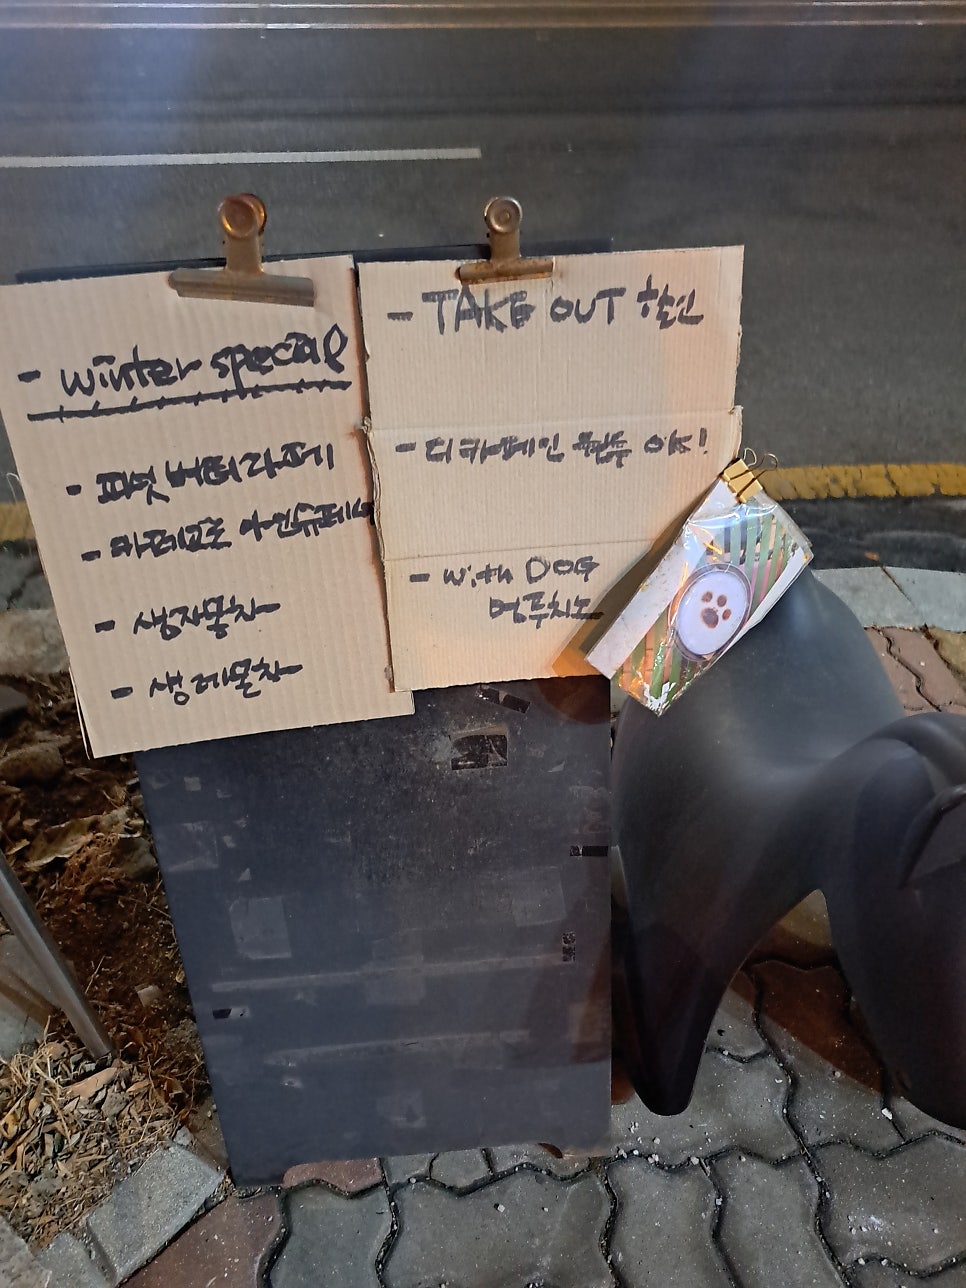 - winter special
- 피넛버터라떼
- 마레교로 아인슈페너
- 생자몽차
- 생레몬차
- TAKE OUT 할인
- 디카페인 원두 OK!
- with DOG
멍푸치노